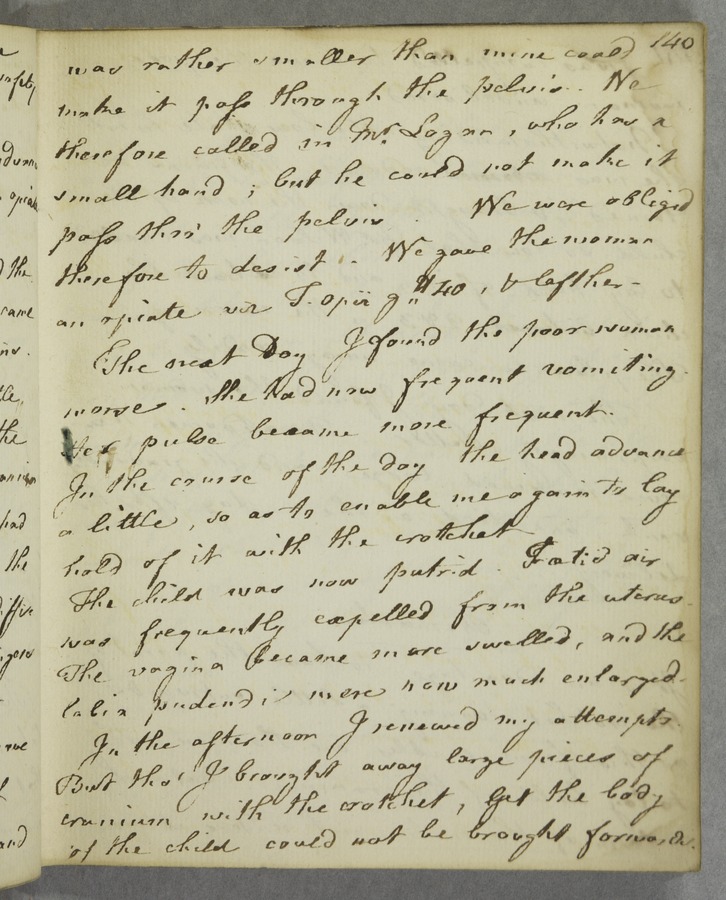 140
was rather smaller than mine could
make it pass through the pelvis. We
therefore called in Mr. Logan, who has a
small hand; but he could not make it
pass thro' the pelvis. We were obliged
therefore to desist. We gave the woman
an opiate viz T. opii g.tt 40, & left her.
The next Day I found the poor woman
worse. She had now frequent vomiting.
Her pulse became more frequent.
In the course of the day the head advance
a little, so as to enable me again to lay
hold of it with the crotchet
The child was now putrid. Fœtid air
was frequently expelled from the uterus.
The vagina became more swelled, and the
labia pudendi were now much enlarged.
In the afternoon I renewed my attempts.
But tho' I brought away large pieces of
cranium with the crotchet, yet the body
of the child could not be brought forwards.